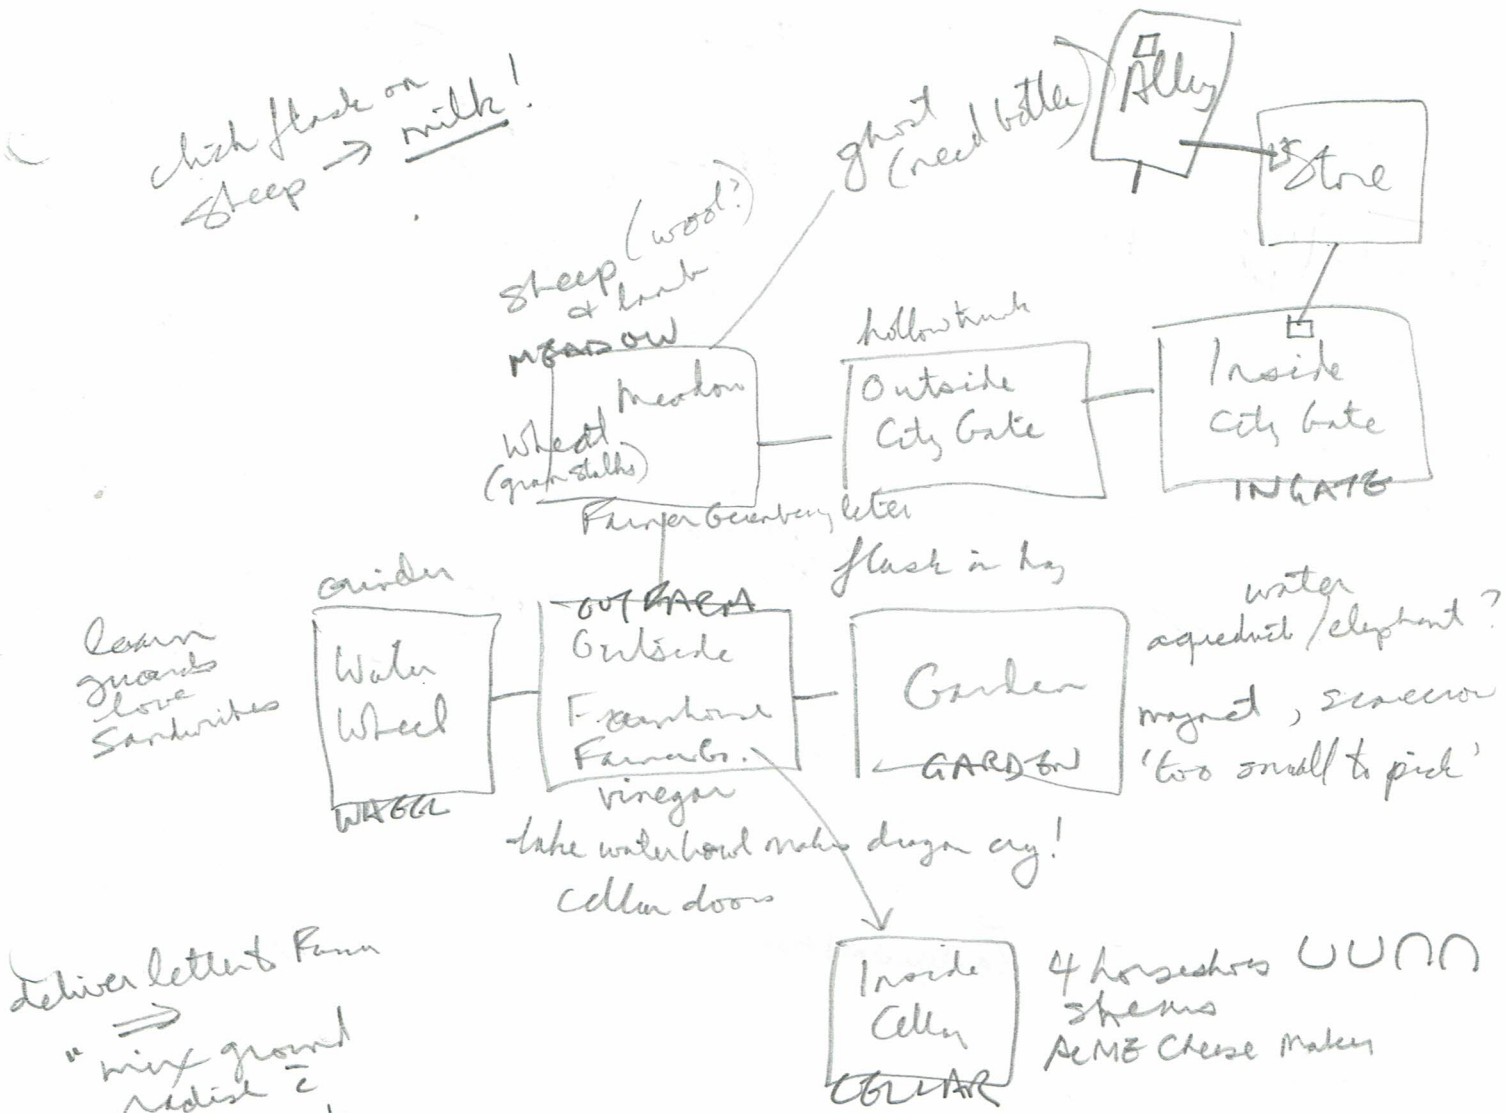 click flask on
sheep → milk!
ghost
(need bottle)
Alley
Store
sheep (wool?)
& lamb
MEADOW
Meadow
Wheat
(grain stalks)
hollow trunk
Outside
City Gate
Inside
City Gate
INGATE
Farmer Greenberry letter
flask in hay
Grinder
learn
guards
love
Sandwiches
Water
Wheel
WHEEL
OUTFARM
Outside
Farmhouse
Farmer G.
vinegar
take waterbowl makes dragon cry!
Cellar doors
Garden
GARDEN
water
aqueduct/elephant?
magnet, scarecrow
'too small to pick'
Inside
Cellar
CELLAR
4 horseshoes UU∩∩
ACME Cheese Maker
deliver letter to Farm
⇒
"mix ground
radish c̄